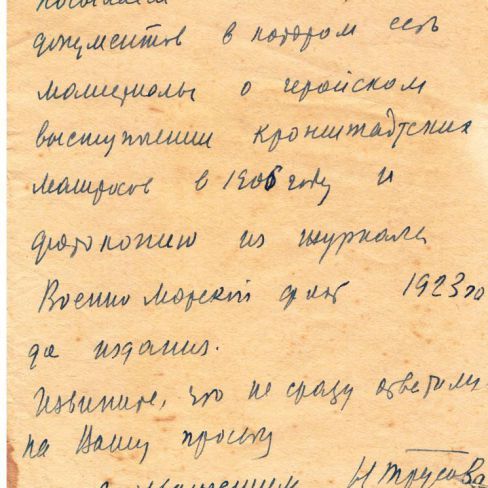 документов в котором есть
материалы о геройском
выступлении кронштадтских
матросов в 1906 году и
фотокопию из журнала
Военно Морской флот 1923 го
да издания.
Извините, что не сразу ответили
на Вашу просьбу
Н Трусова